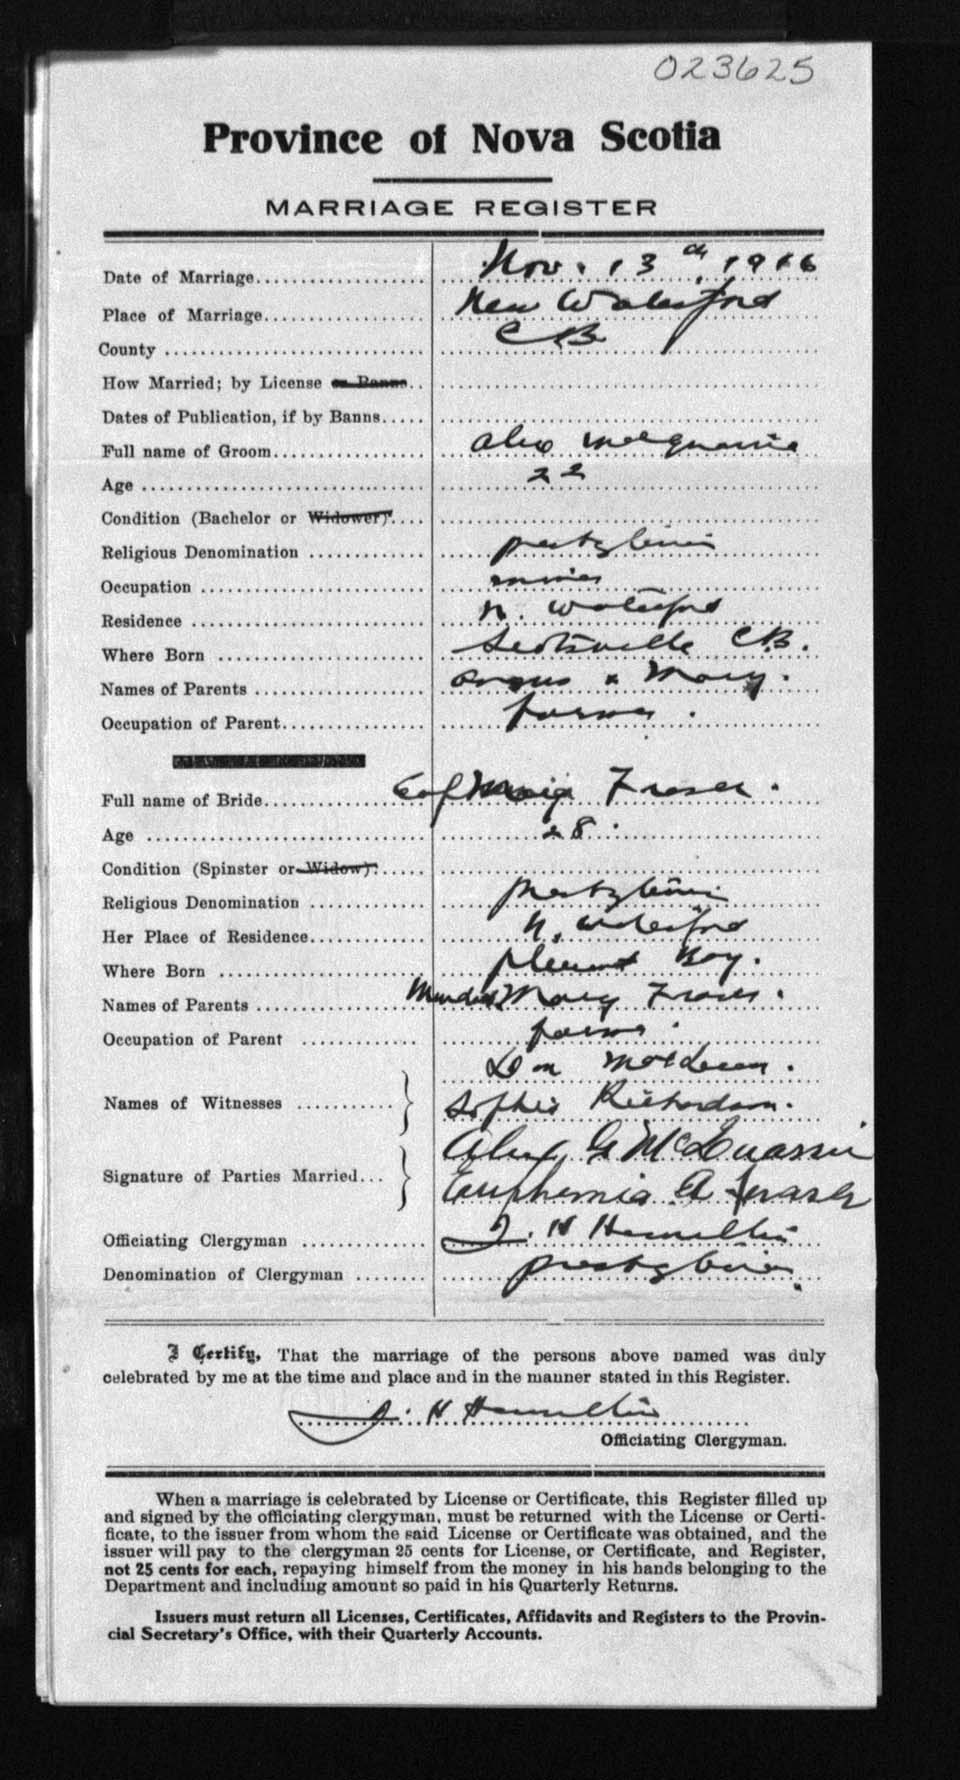 023625
Province of Nova Scotia
MARRIAGE REGISTER
Date of Marriage Nov. 13th, 1916
Place of Marriage New Waterford
County CB
How Married; by License or Banns
Dates of Publication, if by Banns
Full name of Groom Alex McQuarrie
Age 22
Condition (Bachelor or Widower)
Religious Denomination presbyterian
Occupation miner
Residence N. Waterford
Where Born Scotsville C.B.
Names of Parents Angus & Mary.
Occupation of Parent farmer.
Full name of Bride Fraser.
Age 28.
Condition (Spinster or Widow)
Religious Denomination presbyterian
Her Place of Residence N. Waterford
Where Born pleasant Bay.
Names of Parents Murdock Mary Fraser.
Occupation of Parent farmer.
Dan McLean.
Names of Witnesses
Sophie Richardson.
Alex G McQuarrie
Signature of Parties Married
Euphemia A Fraser
Officiating Clergyman J. H Hamilton
Denomination of Clergyman presbyterian.
I Certify, That the marriage of the persons above named was duly
celebrated by me at the time and place and in the manner stated in this Register.
J. H Hamilton
Officiating Clergyman.
When a marriage is celebrated by License or Certificate, this Register filled up
and signed by the officiating clergyman, must be returned with the License or Certi-
ficate, to the issuer from whom the said License or Certificate was obtained, and the
issuer will pay to the clergyman 25 cents for License, or Certificate, and Register,
not 25 cents for each, repaying himself from the money in his hands belonging to the
Department and including amount so paid in his Quarterly Returns.
Issuers must return all Licenses, Certificates, Affidavits and Registers to the Provin-
cial Secretary's Office, with their Quarterly Accounts.